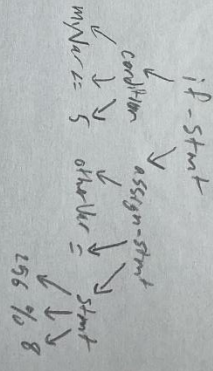 if-stmt
condition assign-stmt
myVar <= 5 otherVar = stmt
256 % 8